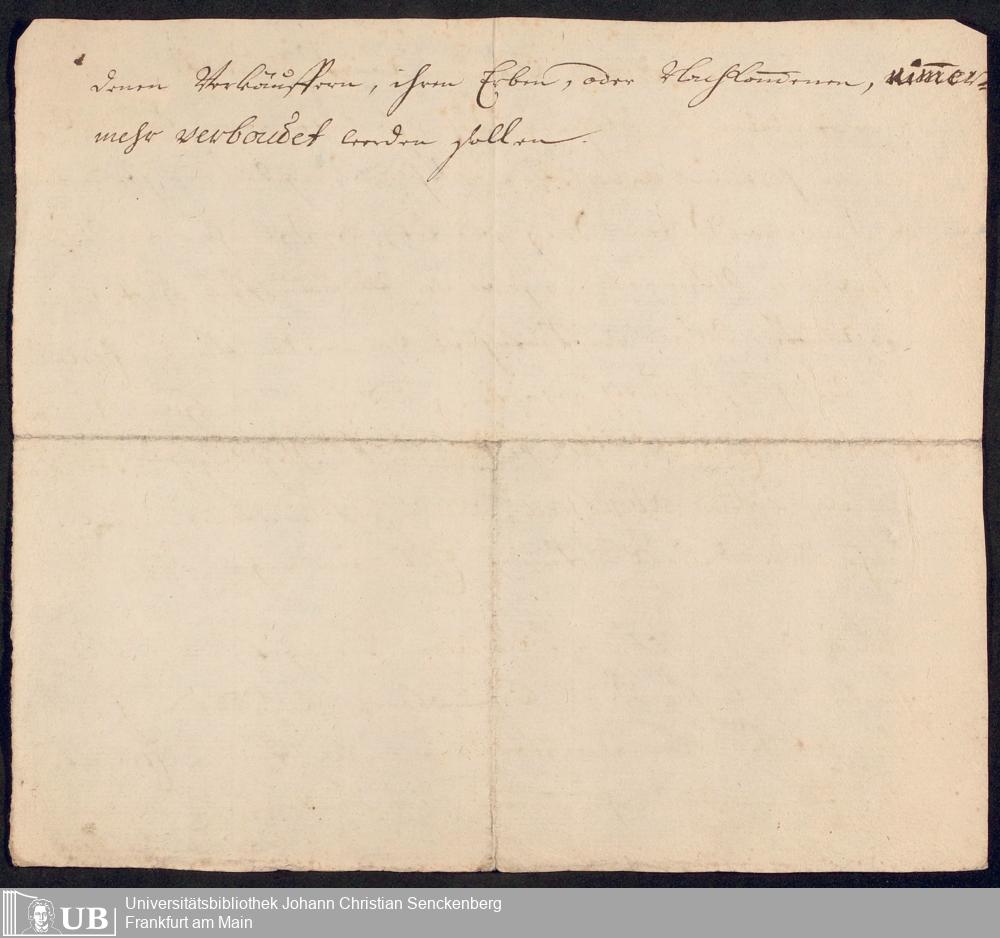 denen Verkäuffern, ihren Erben, oder Nachkom̅enen, nim̅er=
mehr verbauet werden sollen.
UB
Universitätsbibliothek Johann Christian Senckenberg
Frankfurt am Main